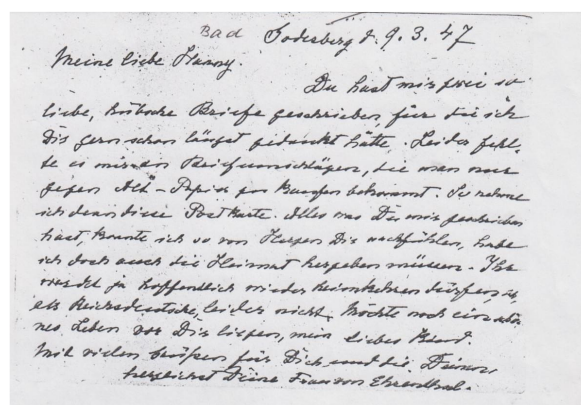 Bad Godesberg d. 9. 3. 47
Meine liebe Hanny.
Du hast mir zwei so
liebe, hübsche Briefe geschrieben, für die ich
Dir gern schon längst gedankt hätte. Leider fehl-
te es mir an Briefumschlägen, die man nur
gegen Alt-Papier zu kaufen bekommt. So nehme
ich denn diese Postkarte. Alles was Du mir geschrieben
hast, konnte ich so von Herzen Dir nachfühlen, habe
ich doch auch die Heimat hergeben müssen. Ihr
werdet ja hoffentlich wieder heimkehren dürfen,
als Reichsdeutsche, leider nicht. Möchte noch ein schö-
nes Leben vor Dir liegen, mein liebes Kind.
Mit vielen Grüßen für Dich und die Deinen
herzlichst Deine Frau von Ehrenthal.